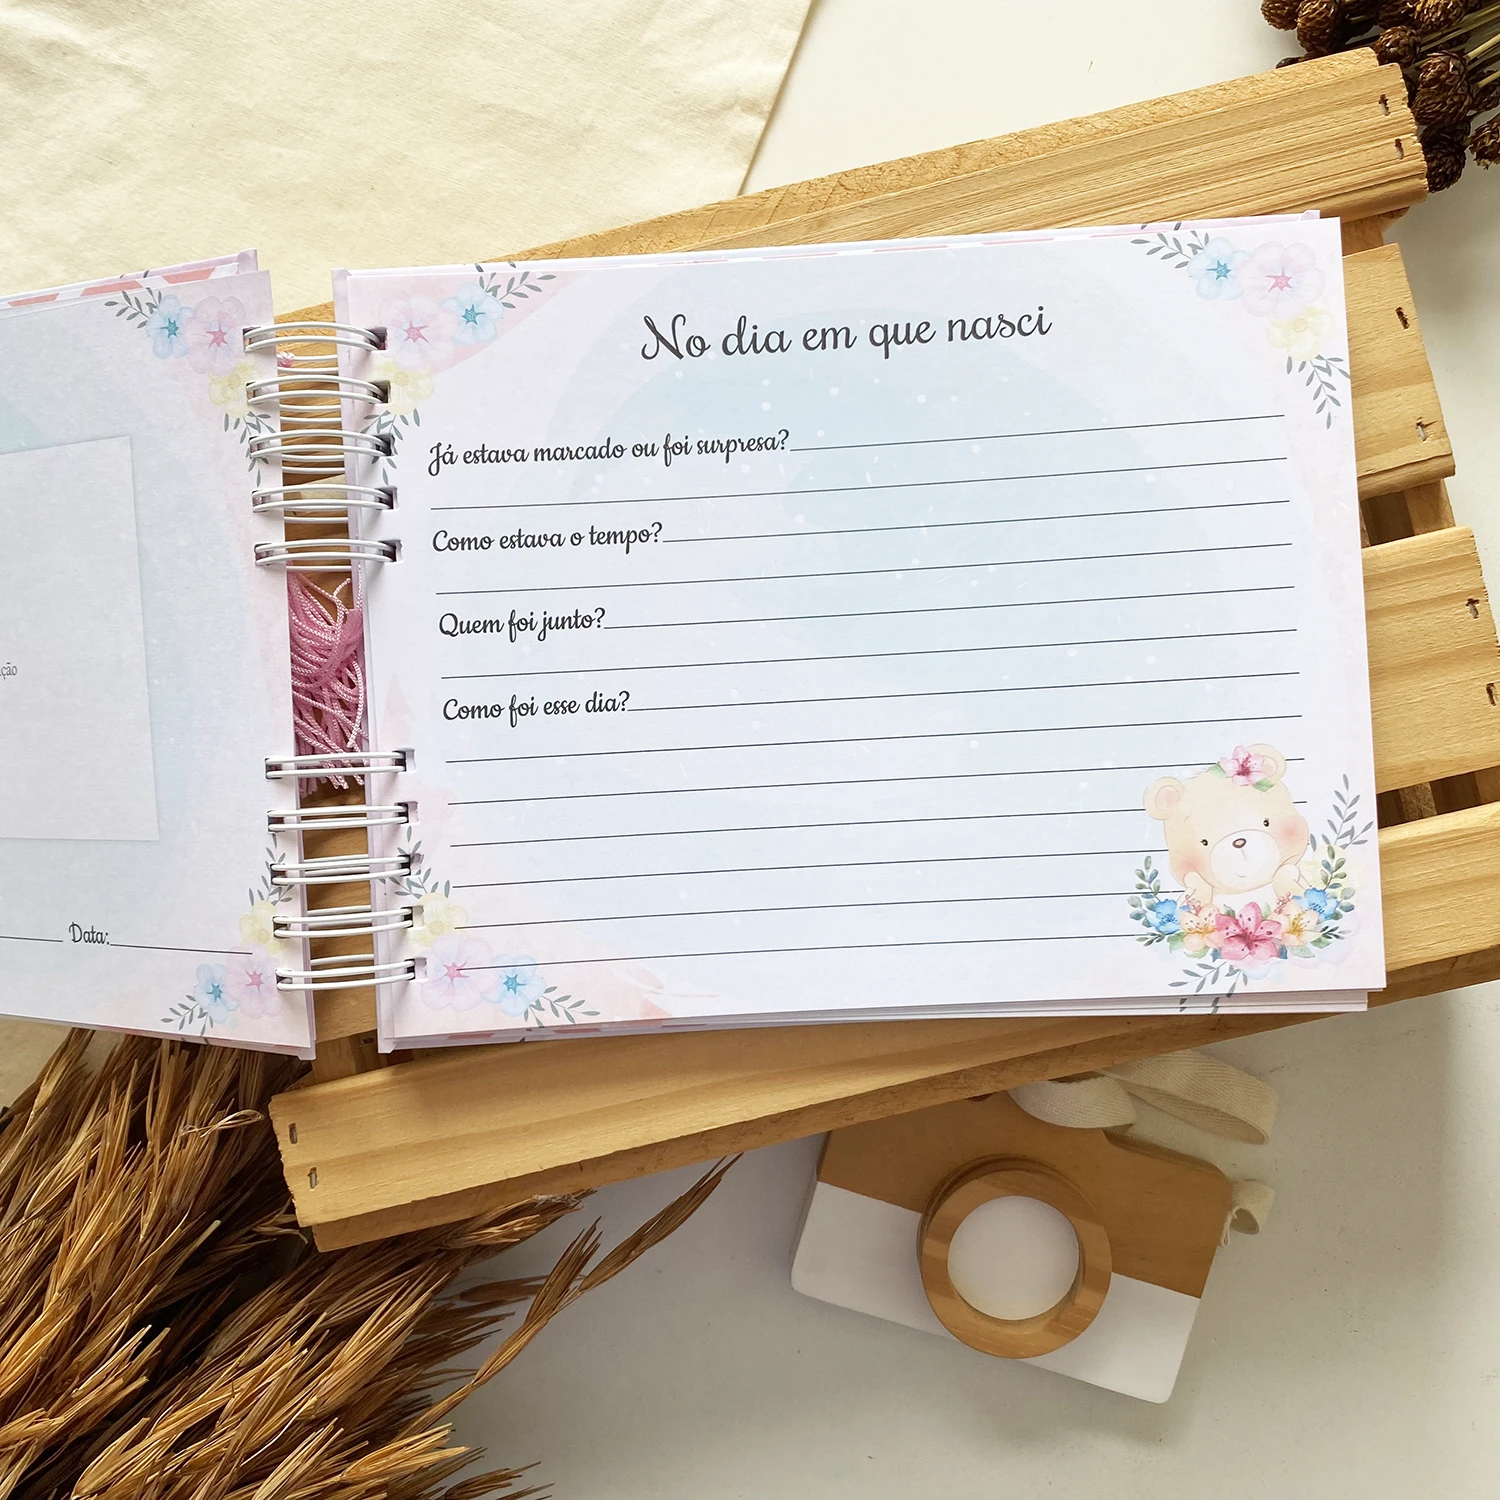 No dia em que nasci
Já estava marcado ou foi surpresa?
Como estava o tempo?
Quem foi junto?
Como foi esse dia?
Data: